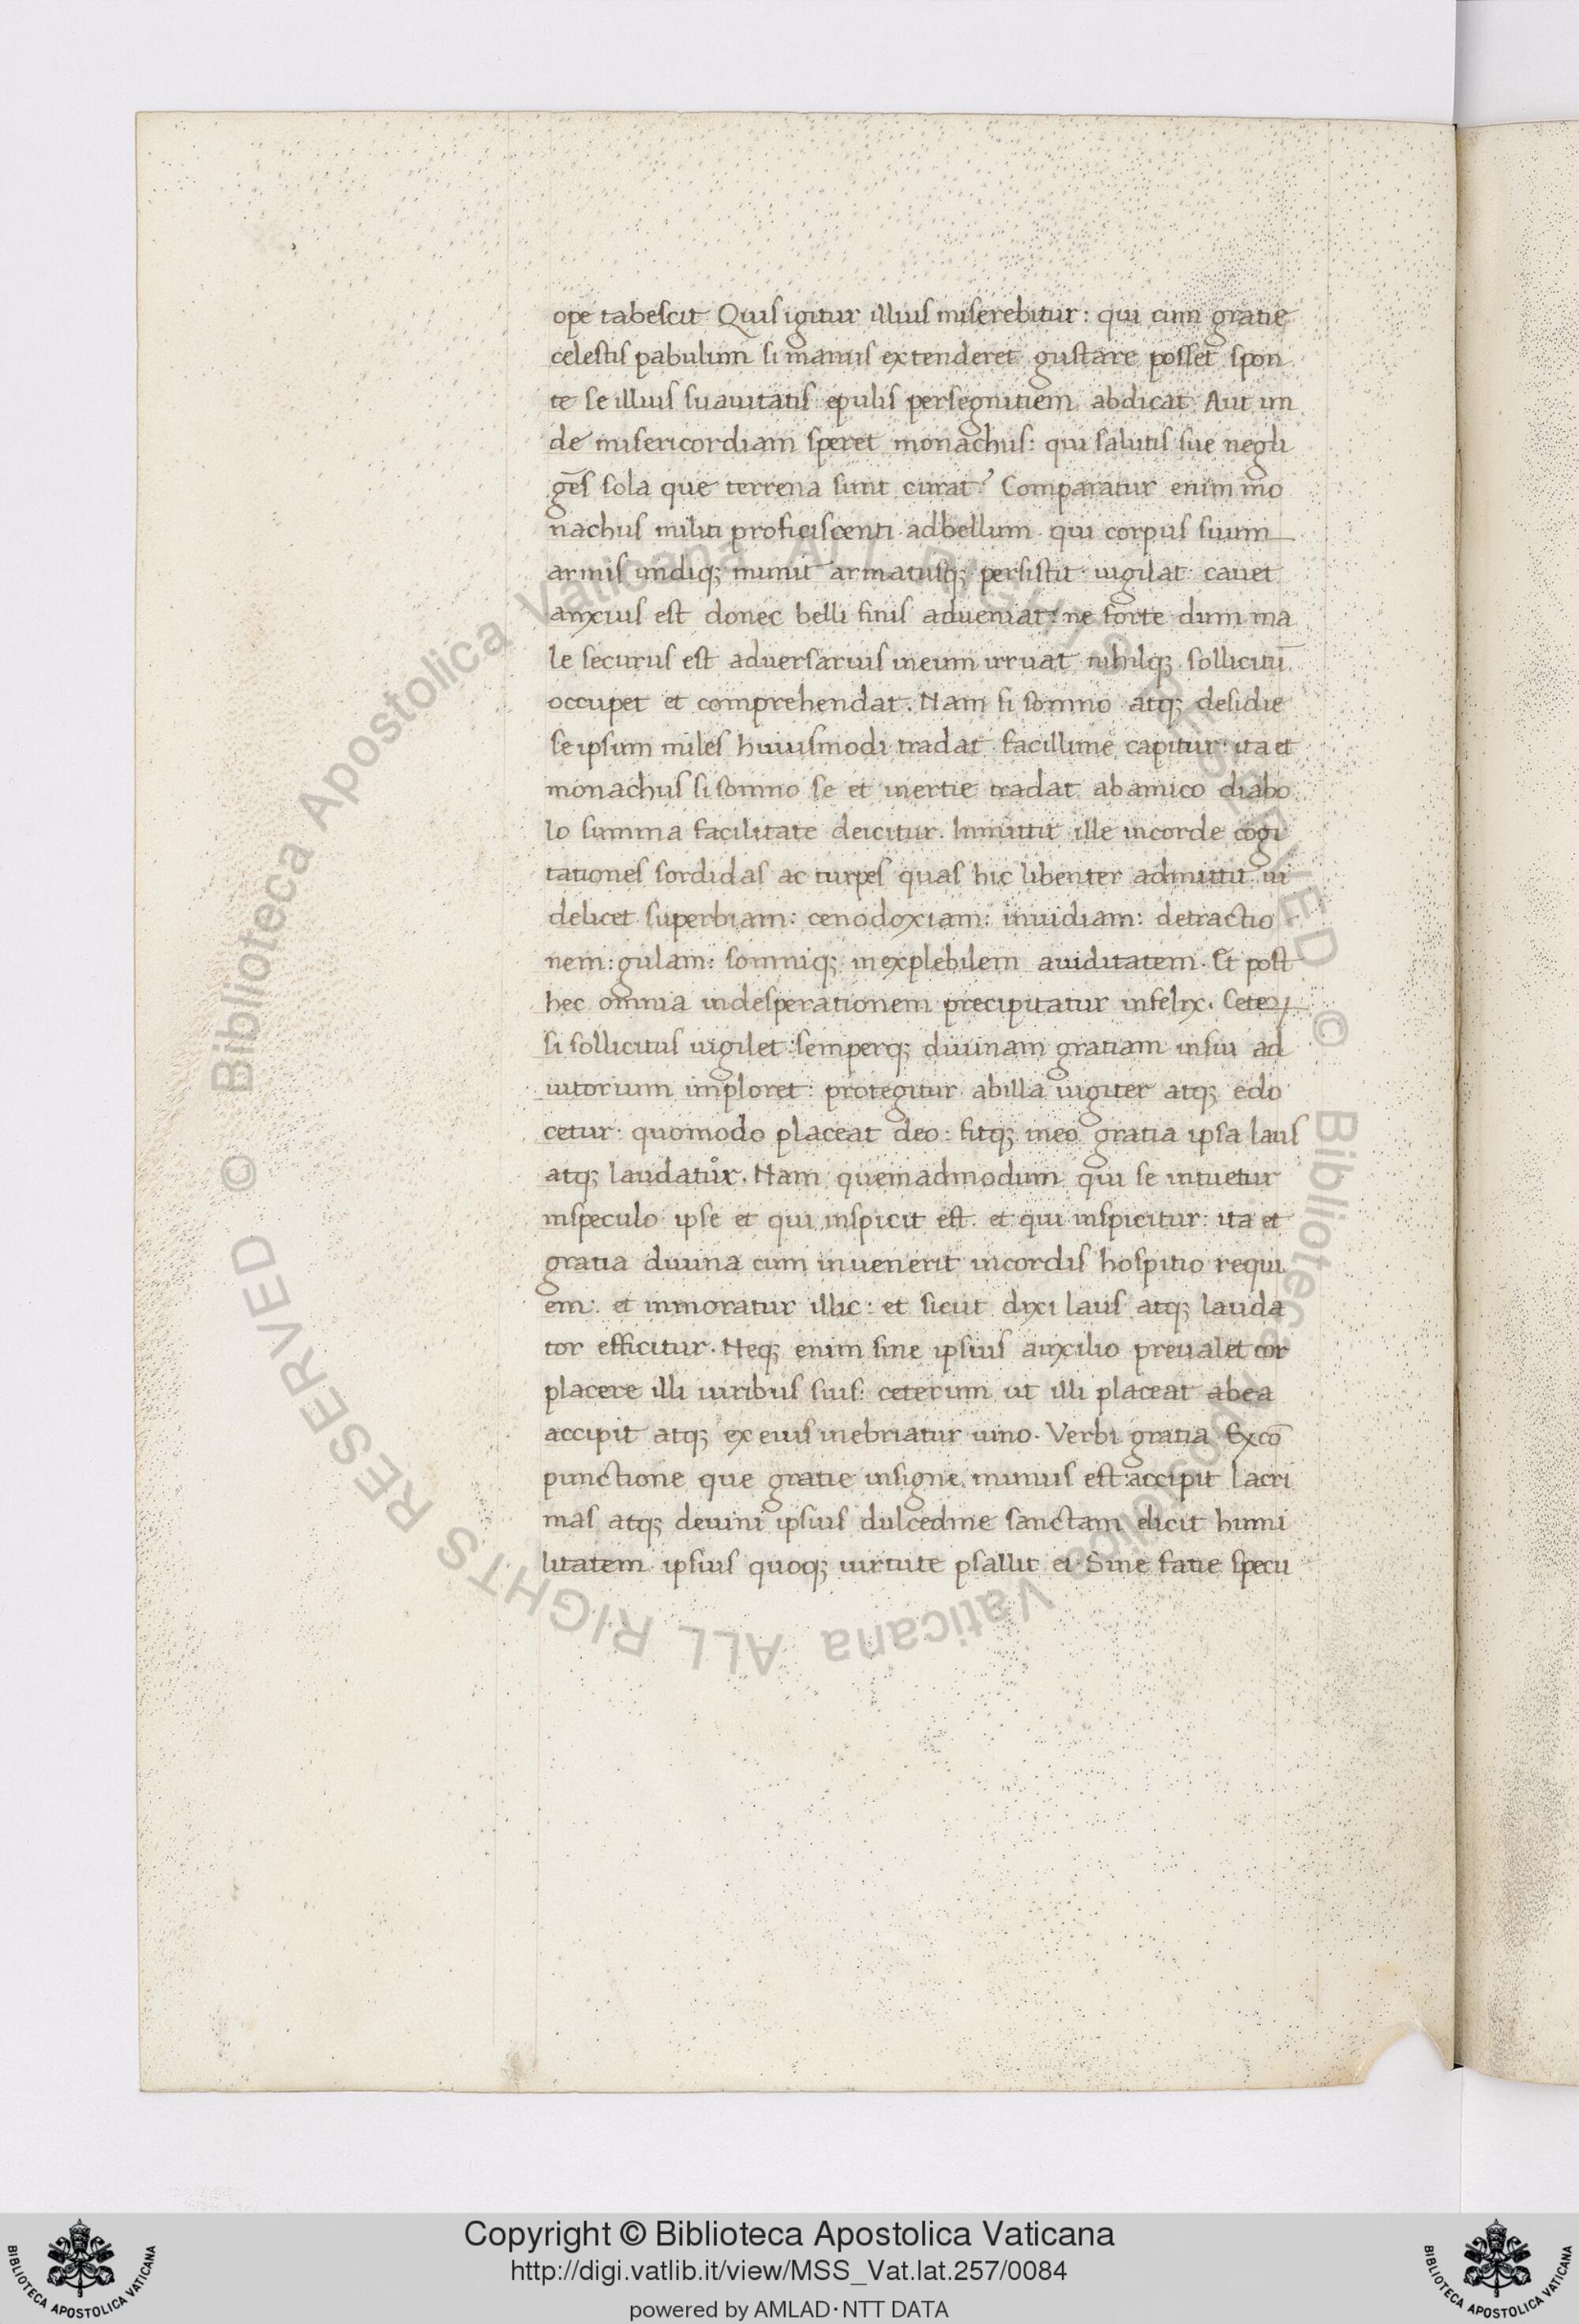 ope tabescit Quis igitur illius miserebitur: qui cum gratie
celestis pabulum si manus extenderet gustare posset spon
te se illius suauitatis epulis persegnitiem abdicat Aut un
de misericordiam speret monachus: qui salutis sue negli
gēs sola que terrena sunt curat? Comparatur enim mo
nachus militi proficiscenti adbellum qui corpus suum
armis undiqꝫ munit armatusqꝫ persistit uigilat cauet
anxius est donec belli finis adueniat: ne forte dum ma
le securus est aduersarius ineum irruat nihilqꝫ sollicitū
occupet et comprehendat. Nam si somno atqꝫ desidie
se ipsum miles huiusmodi tradat facillime capitur: ita et
monachus si somno se et inertie tradat ab amico diabo
lo summa facilitate deicitur. Inmittit ille incorde cogi
tationes sordidas ac turpes quas hic libenter admittit ui
delicet superbiam: cenodoxiam: inuidiam: detractio
nem: gulam: somniqꝫ inexplebilem auiditatem. Et post
hec omnia indesperationem precipitatur infelix. Ceteꝝ
si sollicitus uigilet semperqꝫ diuinam gratiam insui ad
iutorium imploret: protegitur abilla iugiter atqꝫ edo
cetur quomodo placeat deo: fitqꝫ ineo gratia ipsa laus
atqꝫ laudatůr. Nam quemadmodum qui se intuetur
inspeculo ipse et qui inspicit est et qui inspicitur: ita et
gratia diuina cum inuenerit incordis hospitio requi
em: et inmoratur illic: et sicut dixi laus atqꝫ lauda
tor efficitur. Neqꝫ enim sine ipsius auxilio preualet cor
placere illi uiribus suis: ceterum ut illi placeat abea
accipit atqꝫ ex eius inebriatur uino. Verbi gratia Excō
punctione que gratie insigne munus est: accipit lacri
mas atqꝫ deuini ipsius dulcedine sanctam elicit humi
litatem ipsius quoqꝫ uirtute psallit ei. Sine fatie specu
© Biblioteca Apostolica Vaticana ALL RIGHTS RESERVED © Biblioteca Apostolica Vaticana ALL RIGHTS RESERVED
Copyright © Biblioteca Apostolica Vaticana
http://digi.vatlib.it/view/MSS_Vat.lat.257/0084
powered by AMLAD·NTT DATA
BIBLIOTECA APOSTOLICA VATICANA
BIBLIOTECA APOSTOLICA VATICANA